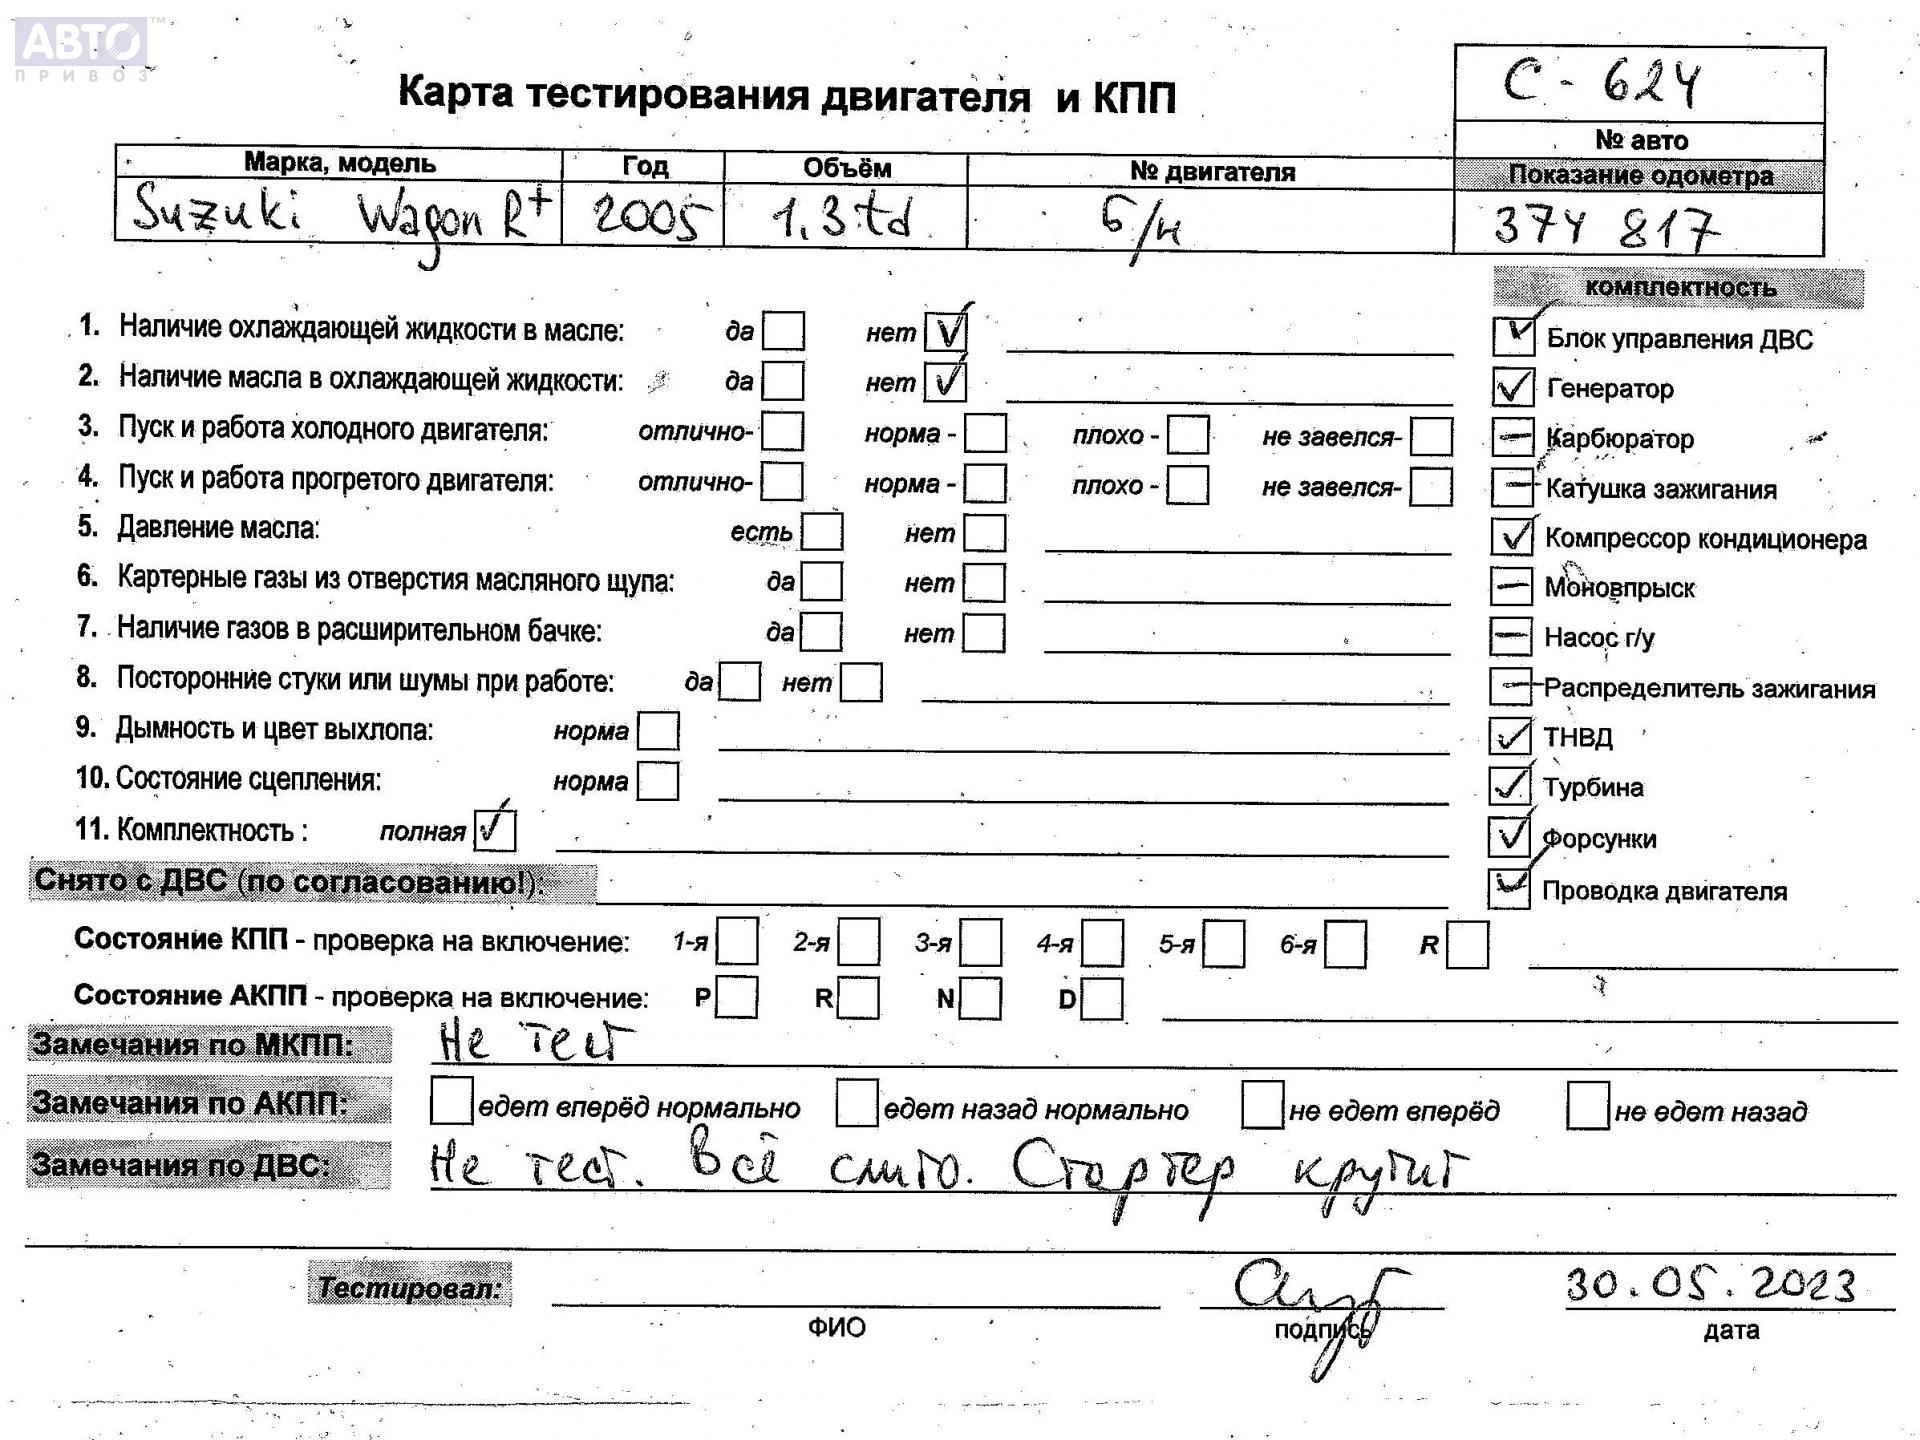 АВТО™
ПРИВОЗ
Карта тестирования двигателя и КПП
С - 624
№ авто
Марка, модель Год Объём № двигателя Показание одометра
Suzuki Wagon R+ 2005 1,3 td б/н 374 817
комплектность
1. Наличие охлаждающей жидкости в масле: да нет ✓
✓ Блок управления ДВС
2. Наличие масла в охлаждающей жидкости: да нет ✓
✓ Генератор
3. Пуск и работа холодного двигателя: отлично- норма - плохо - не завелся-
— Карбюратор
4. Пуск и работа прогретого двигателя: отлично- норма - плохо - не завелся-
— Катушка зажигания
5. Давление масла: есть нет
✓ Компрессор кондиционера
6. Картерные газы из отверстия масляного щупа: да нет
— Моновпрыск
7. Наличие газов в расширительном бачке: да нет
— Насос г/у
8. Посторонние стуки или шумы при работе: да нет
— Распределитель зажигания
9. Дымность и цвет выхлопа: норма
✓ ТНВД
10. Состояние сцепления: норма
✓ Турбина
11. Комплектность : полная ✓
✓ Форсунки
Снято с ДВС (по согласованию!):
✓ Проводка двигателя
Состояние КПП - проверка на включение: 1-я 2-я 3-я 4-я 5-я 6-я R
Состояние АКПП - проверка на включение: P R N D
Замечания по МКПП: Не тест
Замечания по АКПП: едет вперёд нормально едет назад нормально не едет вперёд не едет назад
Замечания по ДВС: Не тест. Всё слито. Стартер крутит
Тестировал: 30.05.2023
ФИО подпись дата